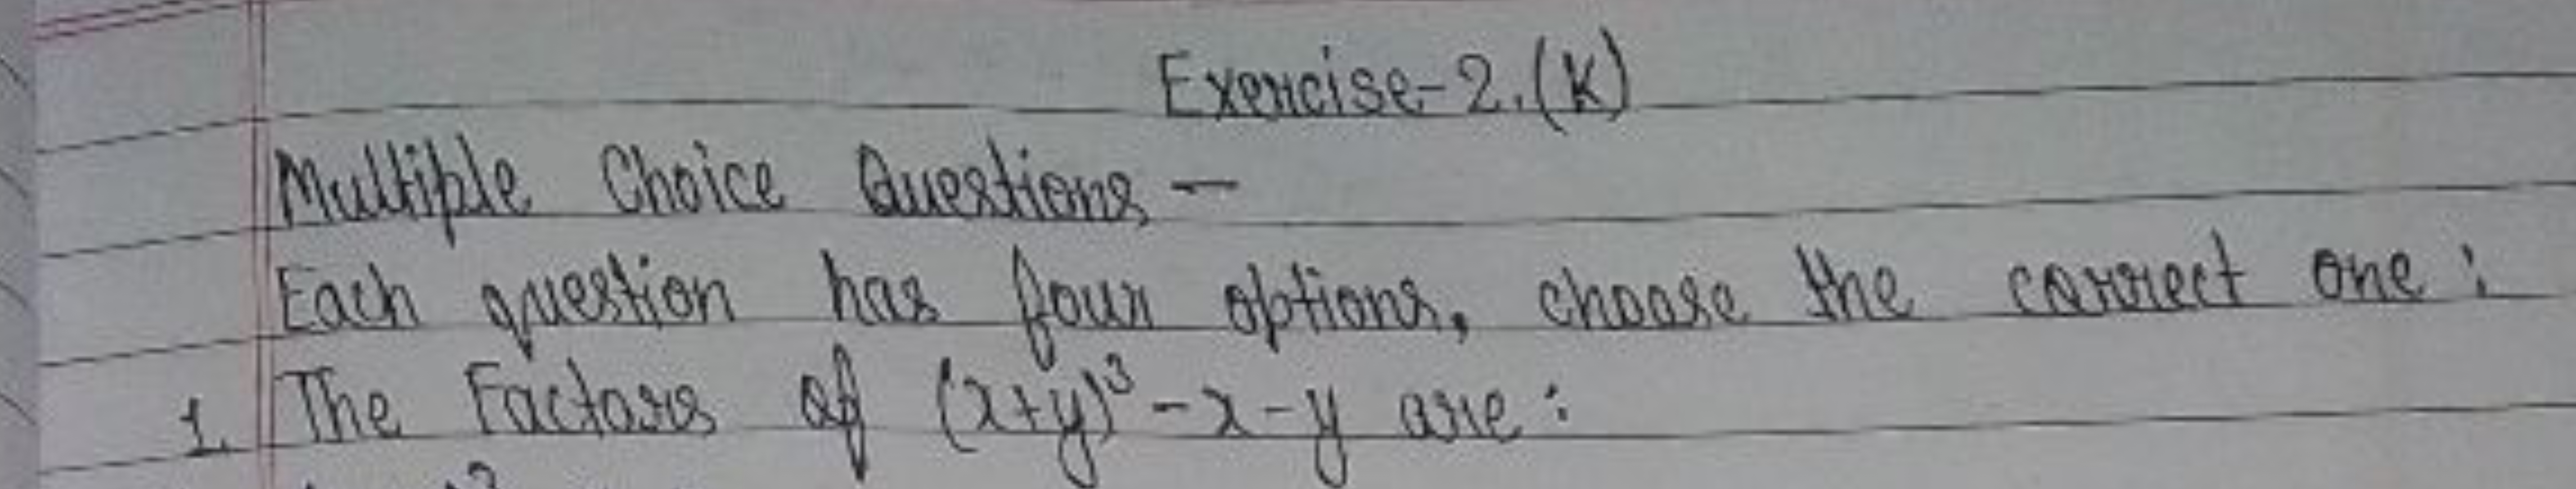 Exercise-2.(K)
Multiple Choice Questions -
Each question has four options, choose the correct one :
1. The Factors of (x+y)³-x-y are :